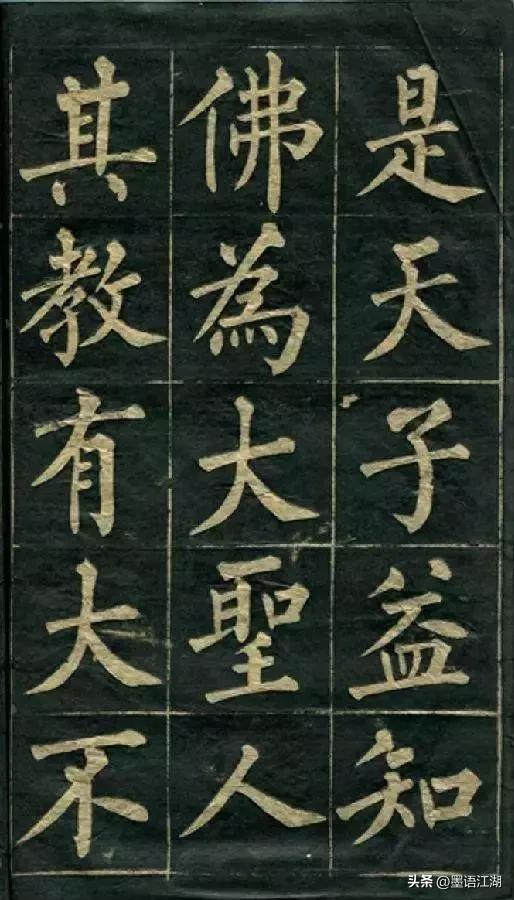 是天子益知
佛為大聖人
其教有大不
头条 @墨语江湖